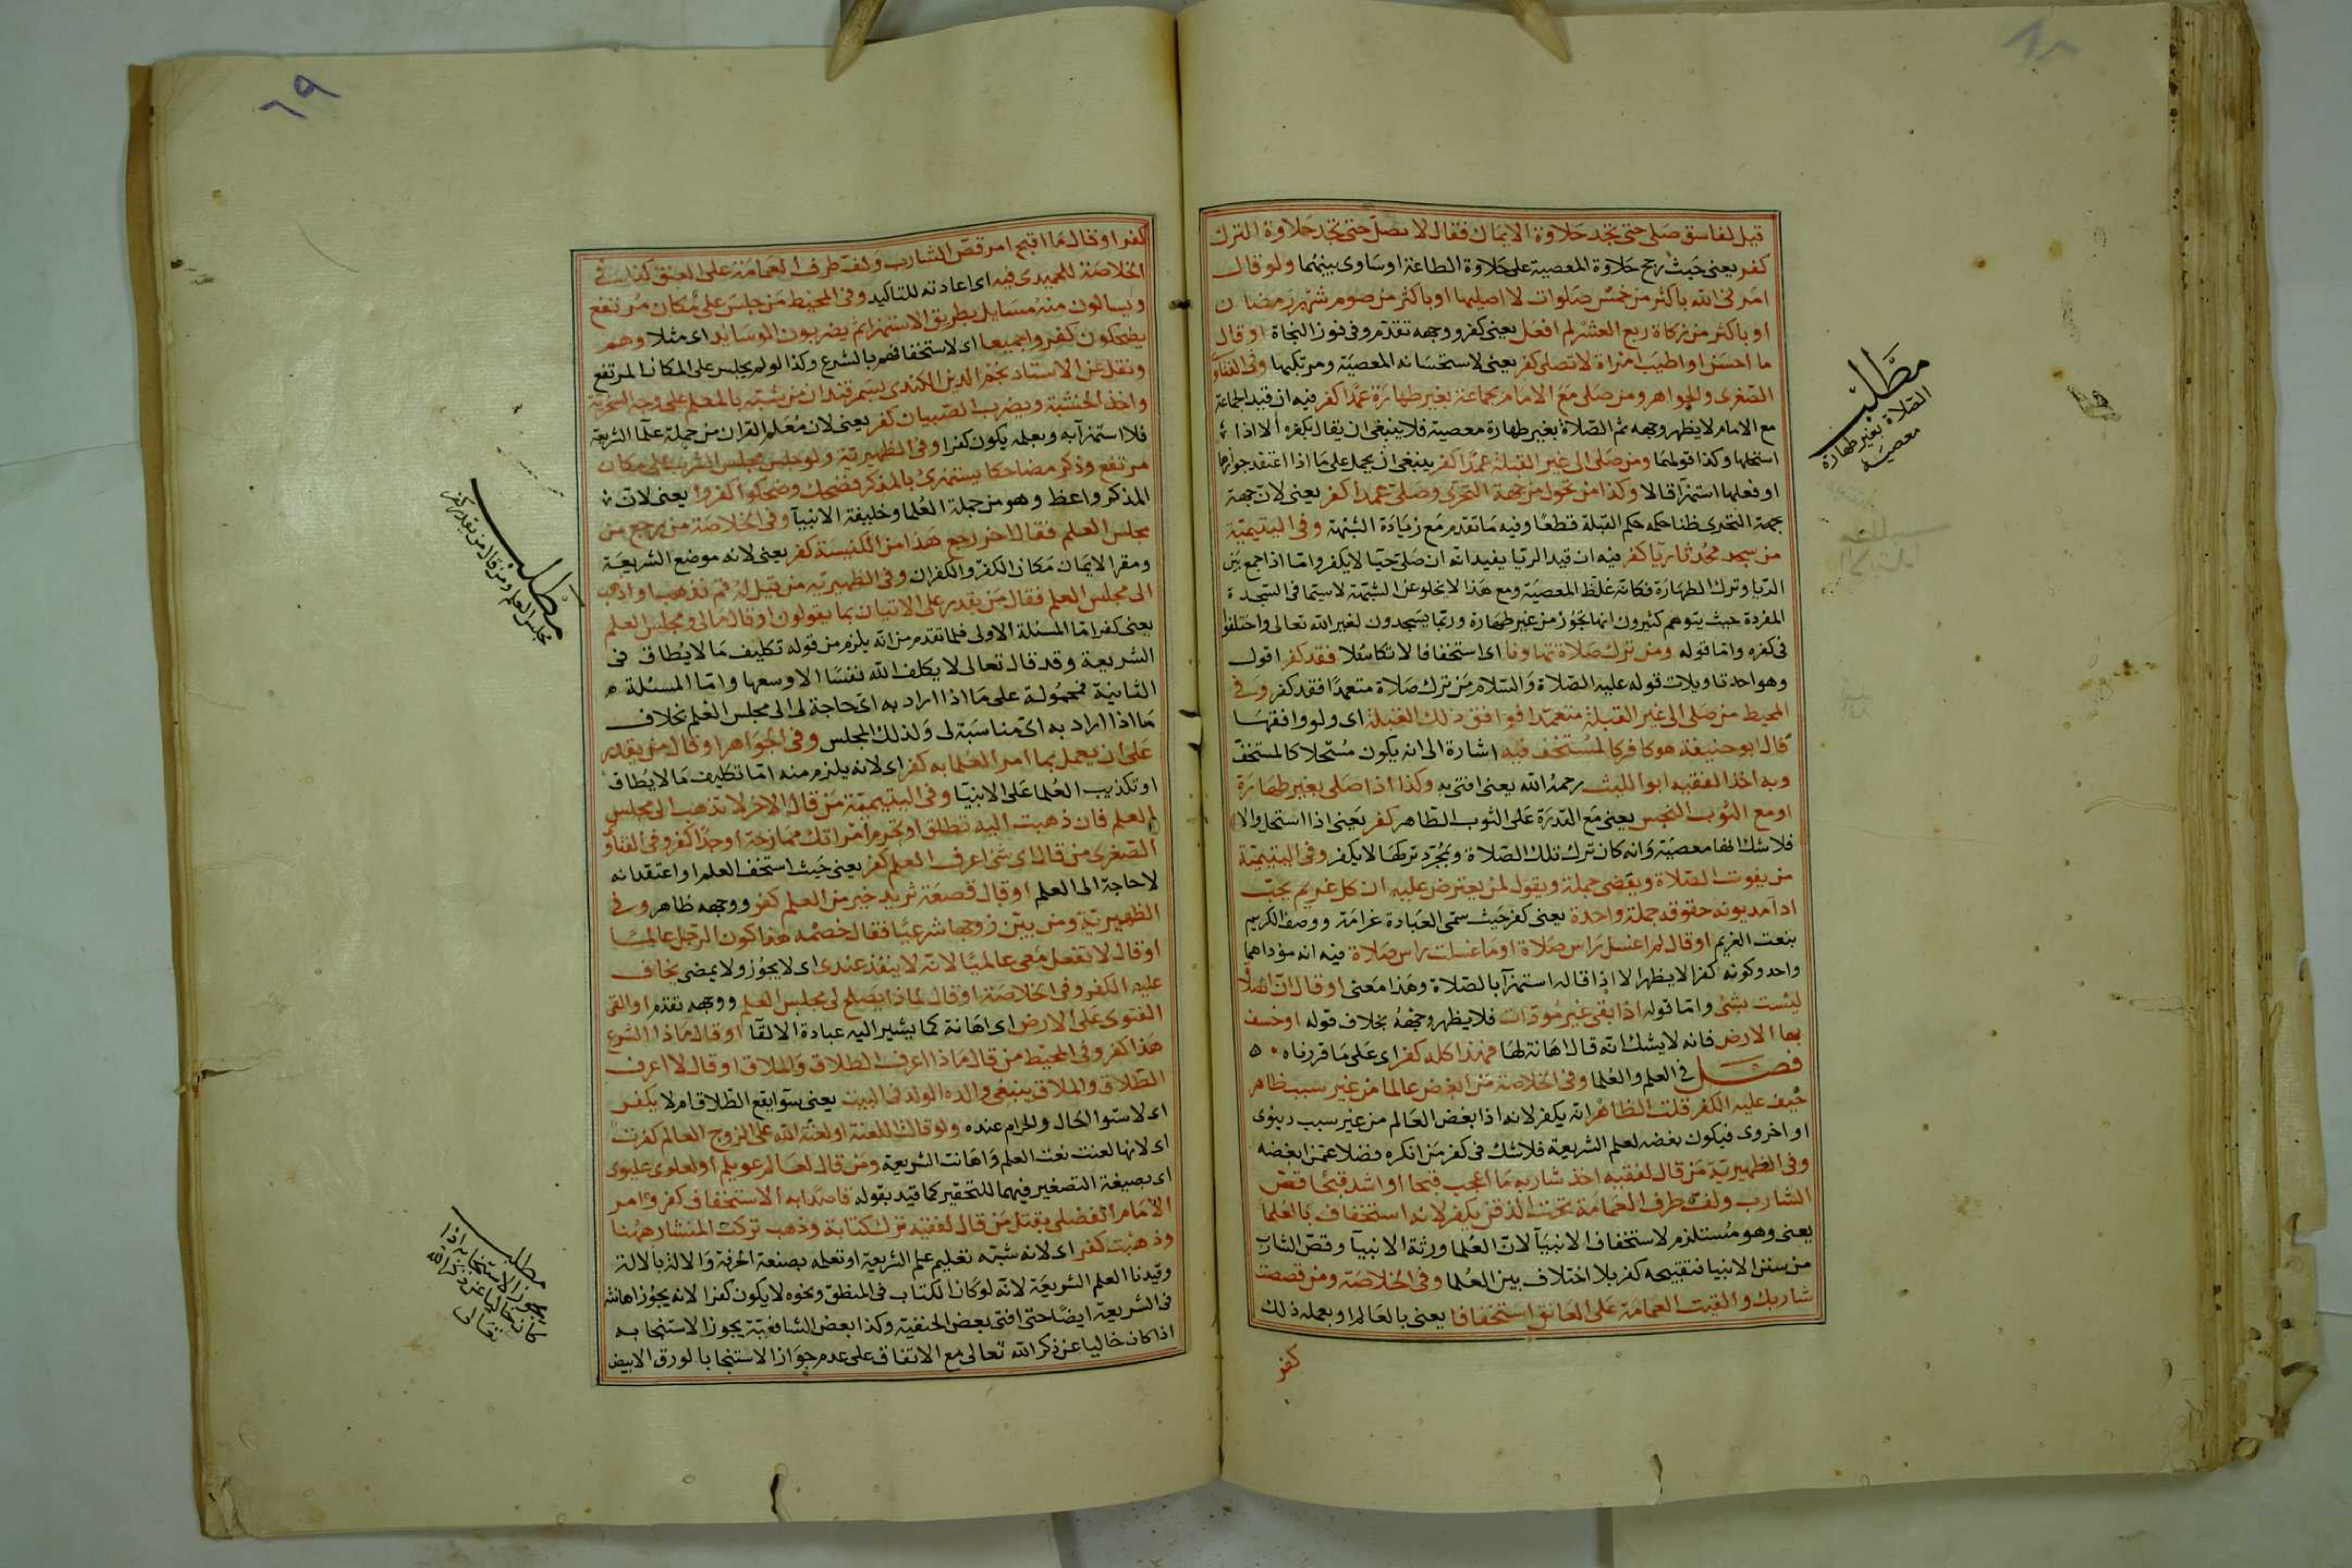 قيل لفاسق صلى حتى تجد حلاوة الايمان فقال لا نصل حتى تجد حلاوة الترك
كفر يعنى حيث رجح حلاوة المعصية على حلاوة الطاعة او ساوى بينهما ولو قال
امرنى الله باكثر من خمس صلوات لا اصليها او باكثر من صوم شهر رمضان
او باكثر من زكاة ربع العشر لم افعل يعنى كفر ووجهه تقدم وفى فوز النجاة او قال
ما احسن او اطيب امراة لا تصلى كفر يعنى لاستحسانه المعصية ومرتكبها وفى الفتاوى
الصغرى والجواهر ومن صلى مع الامام بجماعة بغير طهارة عمدا كفر فيه ان قيد الجماعة
مع الامام لا يظهر وجهه ثم الصلاة بغير طهارة معصية فلا ينبغى ان يقال بكفره الا اذا
استحلها وكذا قولهما ومن صلى الى غير القبلة عمدا كفر ينبغى ان يحمل على ما اذا اعتقد جوازها
او فعلها استهزآ قالا وكذا من تحول من جهة التحرى وصلى عمدا كفر يعنى لان جهة
جهة التحرى ظنا حكمه حكم القبلة قطعا وفيه ما تقدم مع زيادة الشبهة وفى اليتيمية
من سجد محدثا ريآ كفر فيه ان قيد الريا يفيد انه ان صلى حيا لا يكفر واما اذا جمع بين
الريا وترك الطهارة فكانه غلظ المعصية ومع هذا لا يخلو عن الشبهة لا سيما فى السجدة
المفردة حيث يتوهم كثيرون انها تجوز من غير طهارة وربما يسجدون لغير الله تعالى واختلفوا
فى كفره واما قوله ومن ترك صلاة تهاونا اى استخفافا لا تكاسلا فقد كفر اقول
وهو احد تاويلات قوله عليه الصلاة والسلام من ترك صلاة متعمدا فقد كفر وفى
المحيط من صلى الى غير القبلة متعمدا فوافق ذلك القبلة اى ولو وافقها
قال ابو حنيفة هو كافر كالمستخف فيه اشارة الى انه يكون مستحلا كالمستخف
وبه اخذ الفقيه ابو الليث رحمه الله يعنى افتى به وكذا اذا صلى بغير طهارة
او مع الثوب النجس يعنى مع القدرة على الثوب الطاهر كفر يعنى اذا استحل والا
فلا شك انها معصية وانه كان ترك تلك الصلاة وبمجرد تركها لا يكفر وفى اليتيمية
من يفوت الصلاة ويقضى جملة ويقول لمن يعترض عليه ان كل غريم يحب
اداء مديونه حقوقه جملة واحدة يعنى كفر حيث سمى العبادة غرامة ووصف الكريم
بنعت الغريم او قال لم اغسل راس صلاة او ما غسلت راس صلاة فيه انه مؤداهما
واحد وكونه كفرا لا يظهر الا اذا قاله استهزآ بالصلاة وهذا معنى او قال ان الصلاة
ليست بشئ واما قوله اذا بقى غير مودات فلا يظهر وجهه بخلاف قوله او خسف
بها الارض فانه لا يشك انه قال اهانة لها فهذا كله كفر اى على ما قررناه
فصل فى العلم والعلما وفى الخلاصة من ابغض عالما من غير سبب ظاهر
خيف عليه الكفر قلت الظاهر انه يكفر لانه اذا بغض العالم من غير سبب دينوى
او اخروى فيكون بغضه لعلم الشريعة فلا شك فى كفر من انكره فضلا عمن ابغضه
وفى الظهيرية من قال لفقيه اخذ شاربه ما اعجب قبحا او اشد قبحا قص
الشارب ولف طرف العمامة تحت الذقن يكفر لانه استخفاف بالعلما
يعنى وهو مستلزم لاستخفاف الانبيآ لان العلما ورثة الانبيآ وقص الشارب
من سنن الانبيا فتقبيحه كفر بلا اختلاف بين العلما وفى الخلاصة ومن قصصت
شاربك والقيت العمامة على العاتق استخفافا يعنى بالعالم او بعمله ذلك
كفر
مطلب
الصلاة بغير طهارة
معصيه
٦٩
كفر او قال ما اقبح امر قص الشارب ولف طرف العمامة على العنق كذا فى
الخلاصة للحميدى فيه اى اعادته للتاكيد وفى المحيط من جلس على مكان مرتفع
ويسالون منه مسايل بطريق الاستهزا ثم يضربون الوسايد اى مثلا وهم
يضحكون كفروا جميعا اى لاستخفافهم بالشرع وكذا لو لم يجلس على المكان المرتفع
ونقل عن الاستاد نجم الدين الكندى بسمرقند ان من تشبه بالمعلم على وجه السخرية
واخذ الخشبة ويضرب الصبيان كفر يعنى لان معلم القران من جملة علما الشريعة
فلاستهزآ به وبعلمه يكون كفرا وفى الظهيرية ولو جلس مجلس الشرب على مكان
مرتفع وذكر مضاحكا يستهزئ بالمذكر فضحك وضحكوا كفروا يعنى لان
المذكر واعظ وهو من جملة العلما وخليفة الانبيآ وفى الخلاصة من رجع من
مجلس العلم فقال اخر رجع هذا من الكنيسة كفر يعنى لانه موضع الشريعة
ومقر الايمان مكان الكفر والكفران وفى الظهيرية من قيل له قم نذهب او اذهب
الى مجلس العلم فقال من يقدر على الاتيان بما يقولون او قال مالى ومجلس العلم
يعنى كفر اما المسئلة الاولى فلما تقدم من انه يلزم من قوله تكليف ما لا يطاق فى
الشريعة وقد قال تعالى لا يكلف الله نفسا الا وسعها واما المسئلة
الثانية فمحمولة على ما اذا اراد به اى حاجة لى الى مجلس العلم بخلاف
ما اذا اراد به اى مناسبة لى ولذلك المجلس وفى الجواهر او قال من يقدر
على ان يعمل بما امر العلما به كفر اى لانه يلزم منه اما تكليف ما لا يطاق
او تكذيب العلما على الانبيا وفى اليتيمية من قال الاخر لا تذهب الى مجلس
العلم فان ذهبت اليه تطلق او تحرم امراتك ممازحة او جدا كفر وفى الفتاوى
الصغرى من قال اى شئ اعرف العلم كفر يعنى حيث استخف العلم او اعتقد انه
لا حاجة الى العلم او قال قصعة ثريد خير من العلم كفر ووجهه ظاهر وفى
الظهيرية ومن بين زوجها شرعيا فقال خصمه هذا كون الرجل عالما
او قال لا تفعل معى عالميا لانه لا ينفذ عندى اى لا يجوز ولا يمضى يخاف
عليه الكفر وفى الخلاصة او قال لماذا يصلح لى مجلس العلم ووجهه تقدم او القى
الفتوى على الارض اى اهانة كما يشير اليه عبادة الالقآ او قال ماذا الشرع
هذا كفر وفى المحيط من قال ماذا اعرف الطلاق والملاق او قال لا اعرف
الطلاق والملاق ينبغى والده الولد فى البيت يعنى سوآ يقع الطلاق ام لا يكفر
اى لاستوا الحال والحرام عنده ولو قالت اللعنة او لعنة الله على الزوج العالم كفرت
اى لانها لعنت نعت العلم واهانت الشريعة ومن قال لعالم عويلم او لعلوى عليوى
اى بصيغة التصغير فيهما للتحقير كما قيد بقوله قاصدا به الاستخفاف كفر وامر
الامام الفضلى بقتل من قال لفقيه ترك كتابه وذهب تركت المنشار ههنا
وذهبت كفر اى لانه شبه تعليم علم الشريعة او تعلمه بصنعة الحرفة والالة بالالة
وقيدنا العلم الشريعة لانه لو كان الكتاب فى المنطق ونحوه لا يكون كفرا لانه يجوز اهانته
فى الشريعة ايضا حتى افتى بعض الحنفية وكذا بعض الشافعية يجوز الاستنجا به
اذا كان خاليا عن ذكر الله تعالى مع الاتفاق على عدم جواز الاستنجا بالورق الابيض
مطلب
مجلس العلم ومن قال من يقدر
مطلب
يجوز الاستنجا به اذا
كان خاليا عن ذكر الله
تعالى